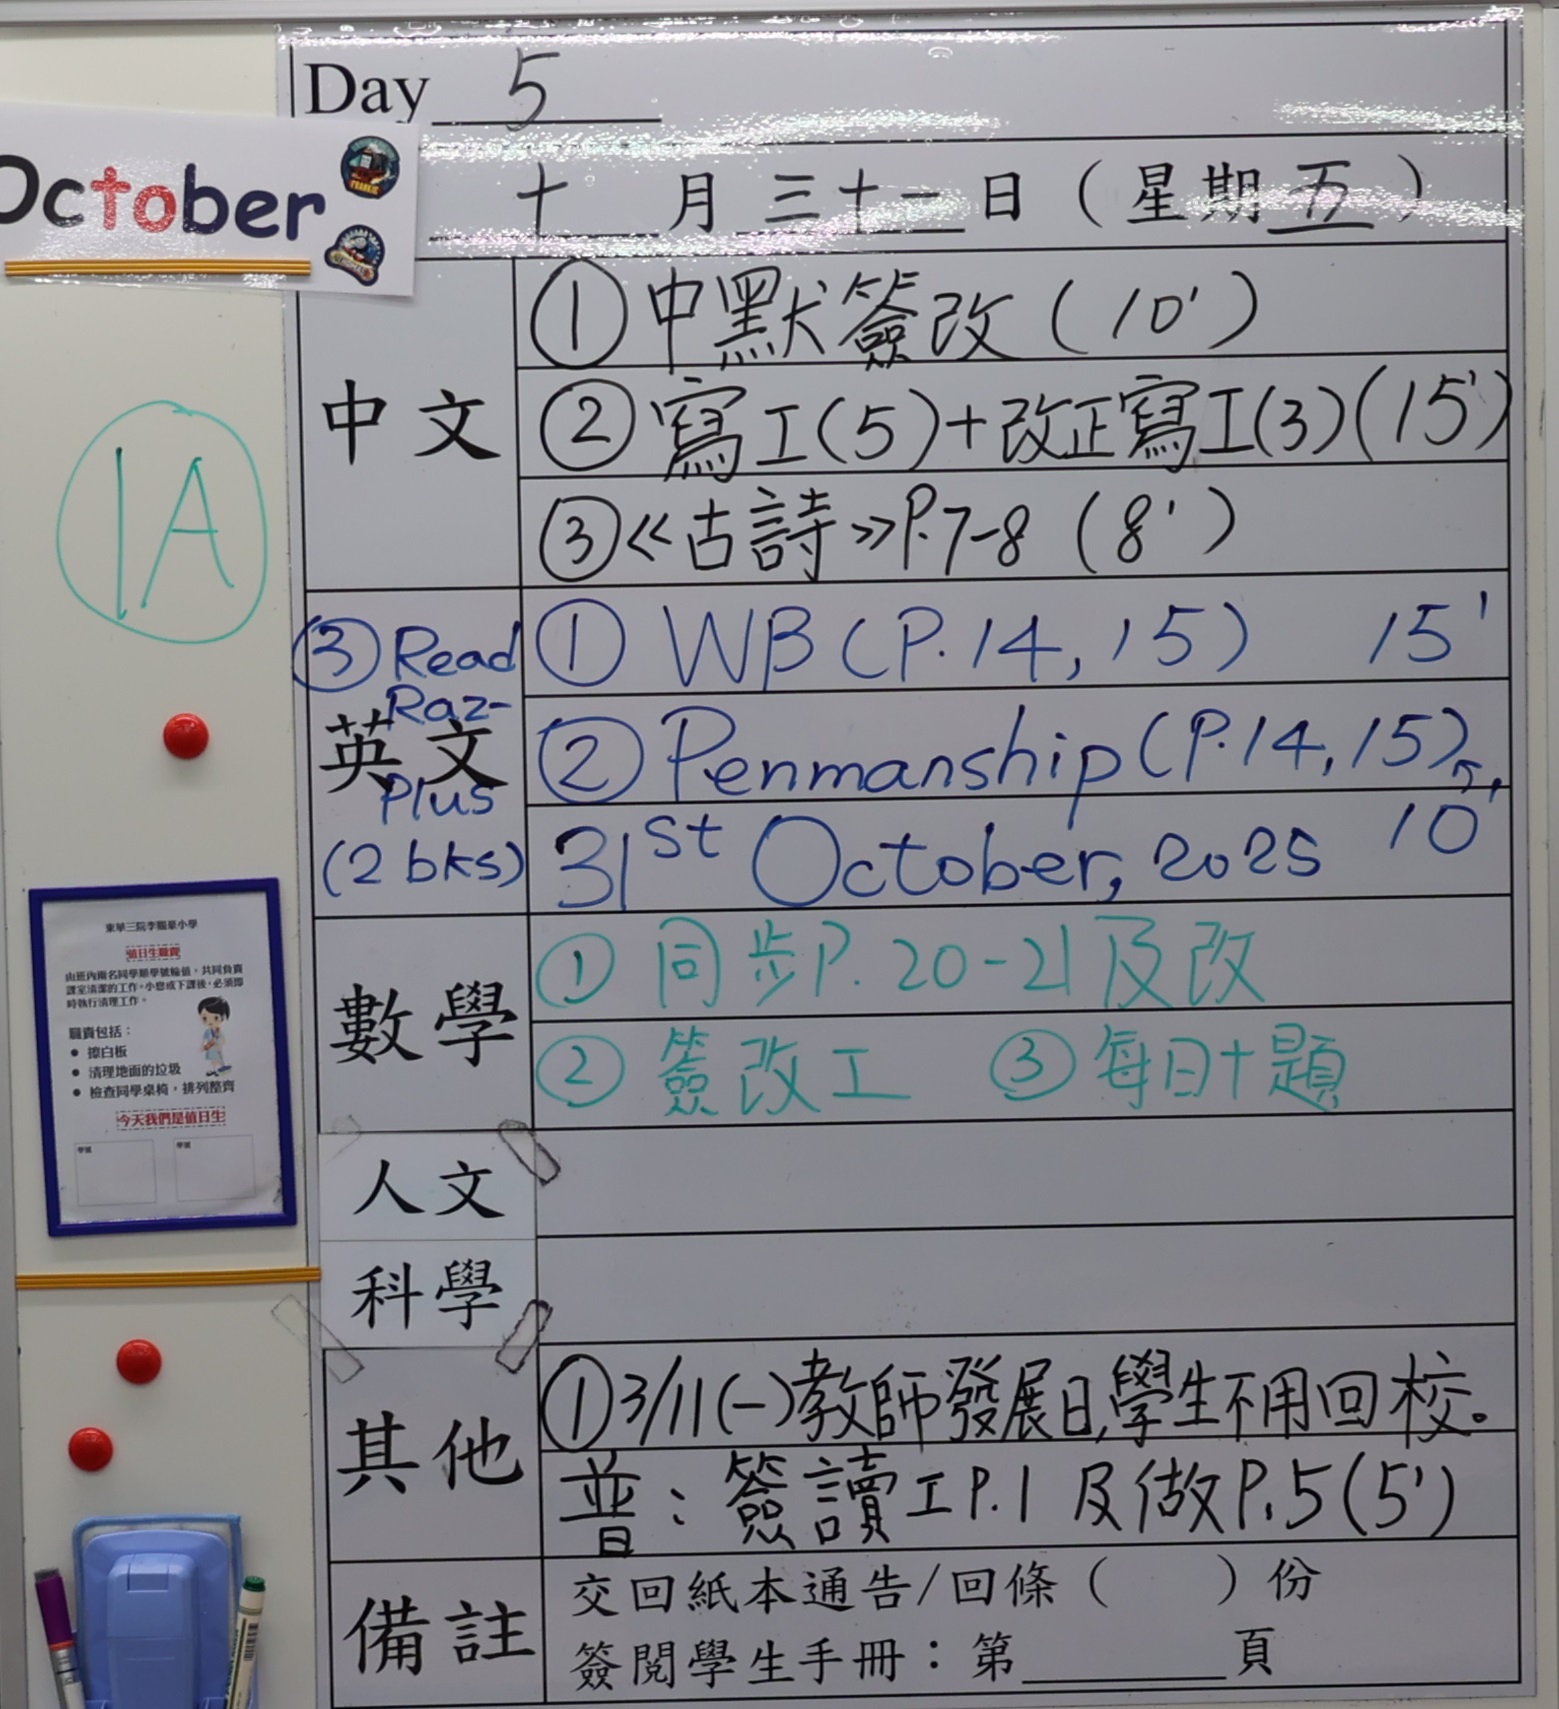 Day 5
October
十月三十一日（星期五）
1A
中文
① 中默簽改（10'）
② 寫工(5)+改正寫工(3)(15')
③ 《古詩》P.7-8（8'）
英文
① WB（P.14, 15） 15'
② Penmanship（P.14, 15）
31st October, 2025 10'
③ Read
Raz-
Plus
(2 bks)
數學
① 同步P.20-21及改
② 簽改工 ③ 每日十題
人文
科學
其他
① 3/11(一)教師發展日,學生不用回校。
普：簽讀工P.1 及做P.5(5')
備註
交回紙本通告/回條（ ）份
簽閱學生手冊：第 頁
值日生職責
由班內兩名同學順學號輪值，共同負責
課室清潔的工作。小息或下課後，必須即
時執行清理工作。
職責包括：
• 擦白板
• 清理地面的垃圾
• 檢查同學桌椅，排列整齊
今天我們是值日生
學號
學號